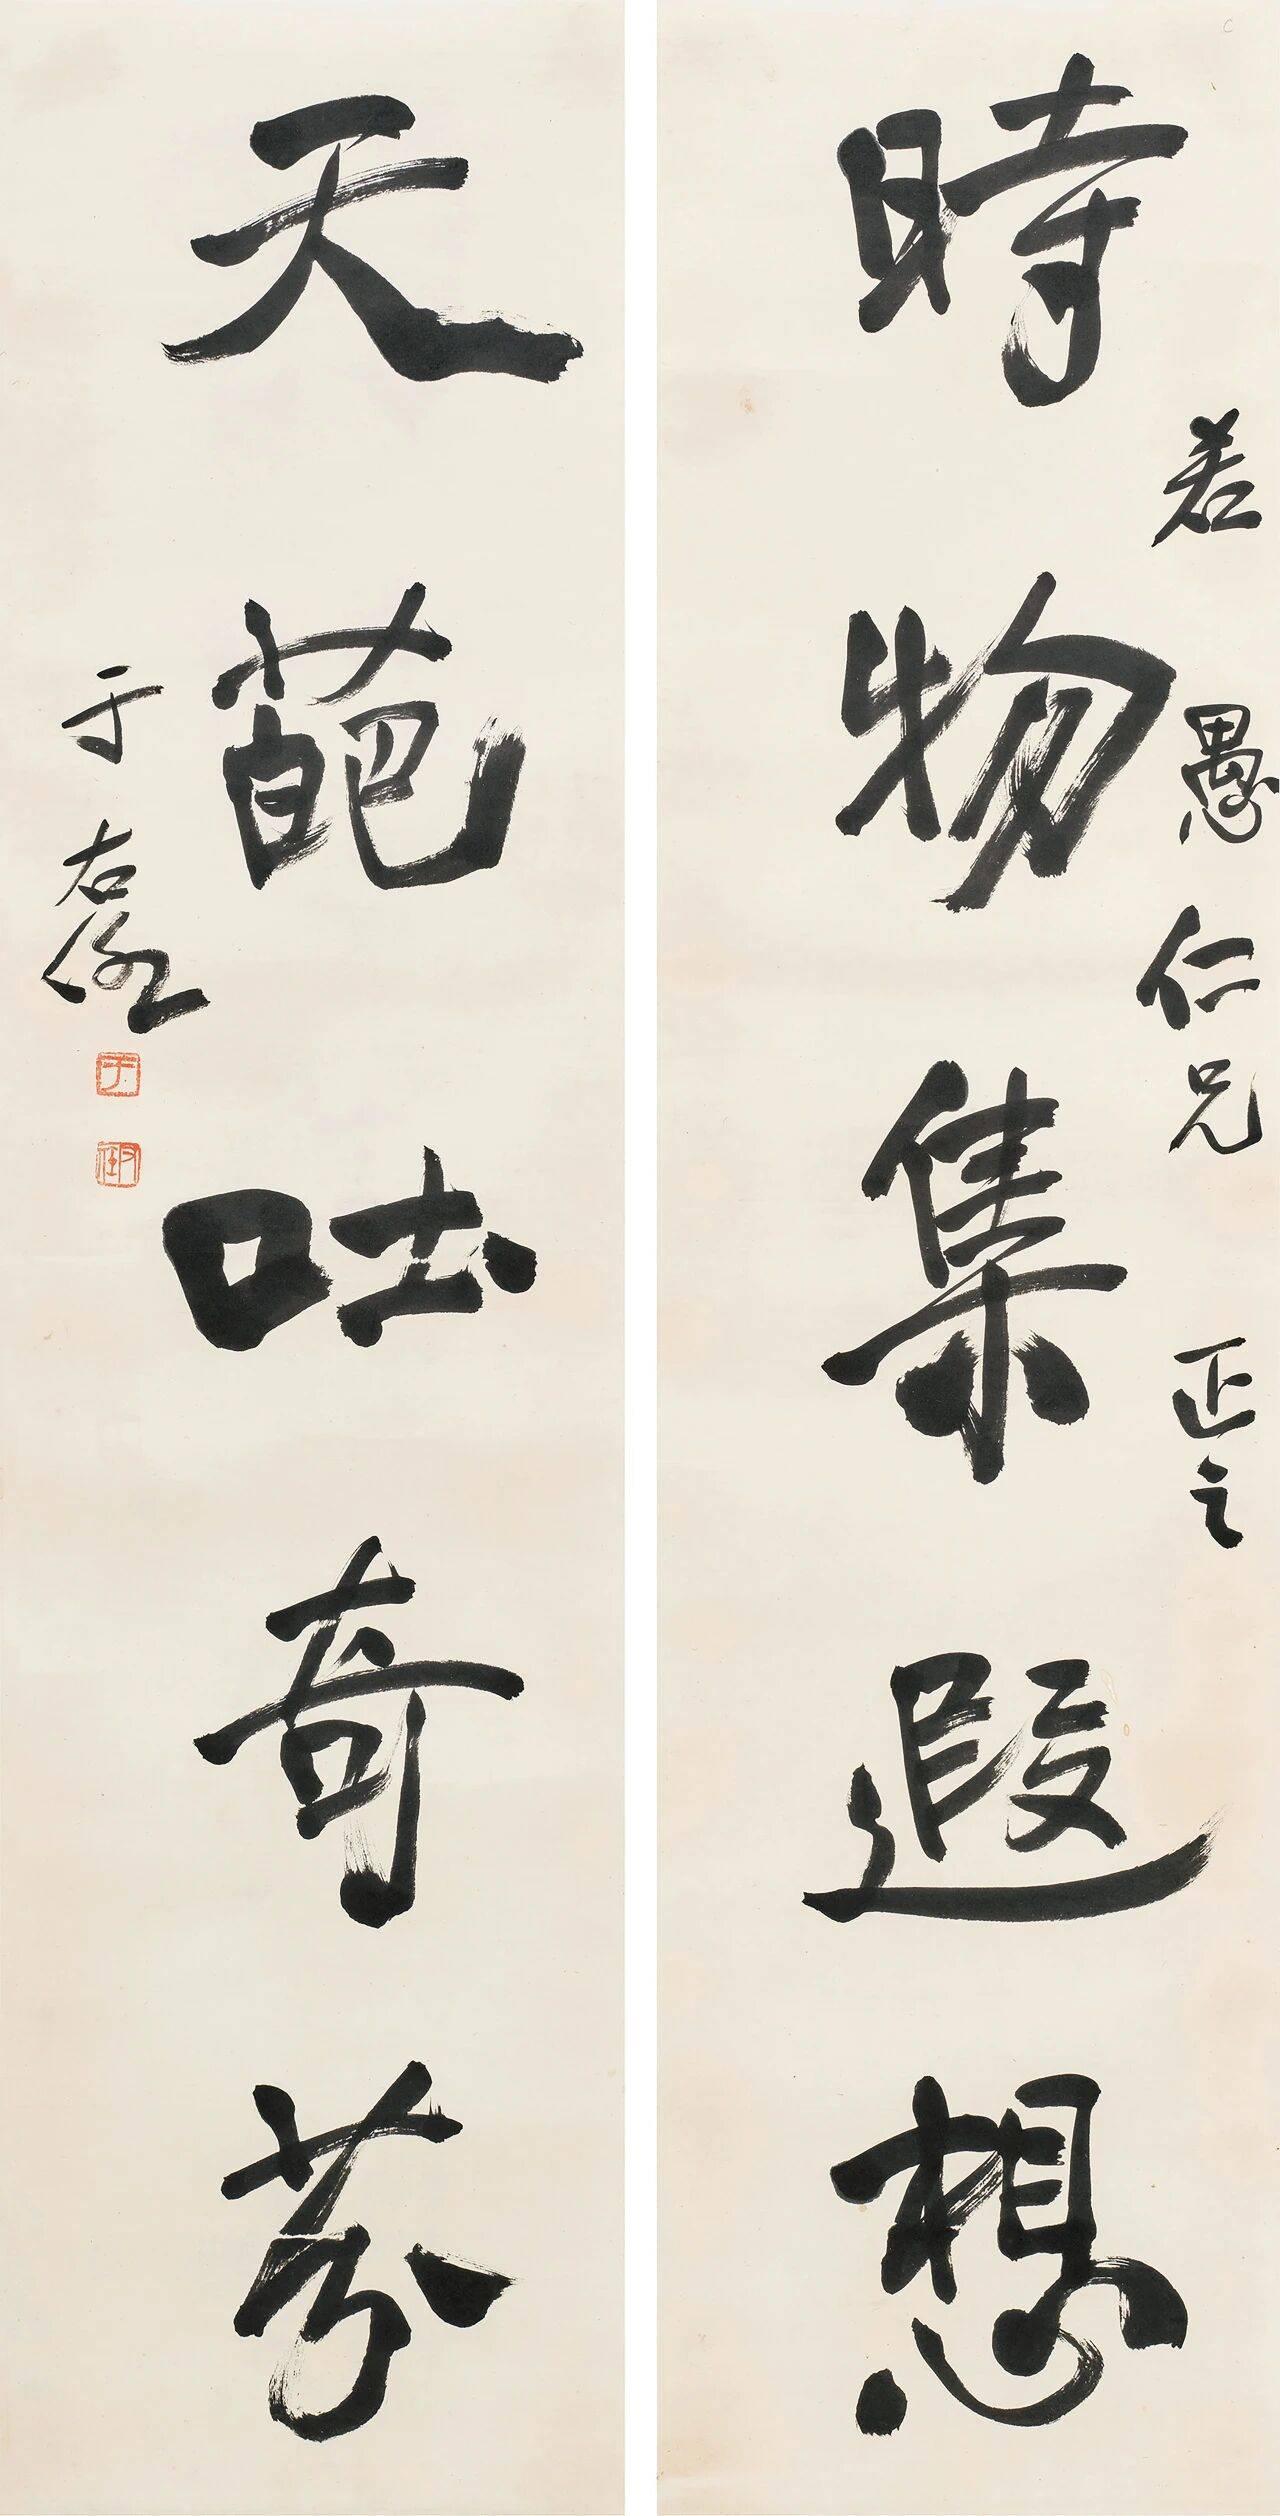 時物集遐想
若愚仁兄正之
天葩吐奇芬
于右任